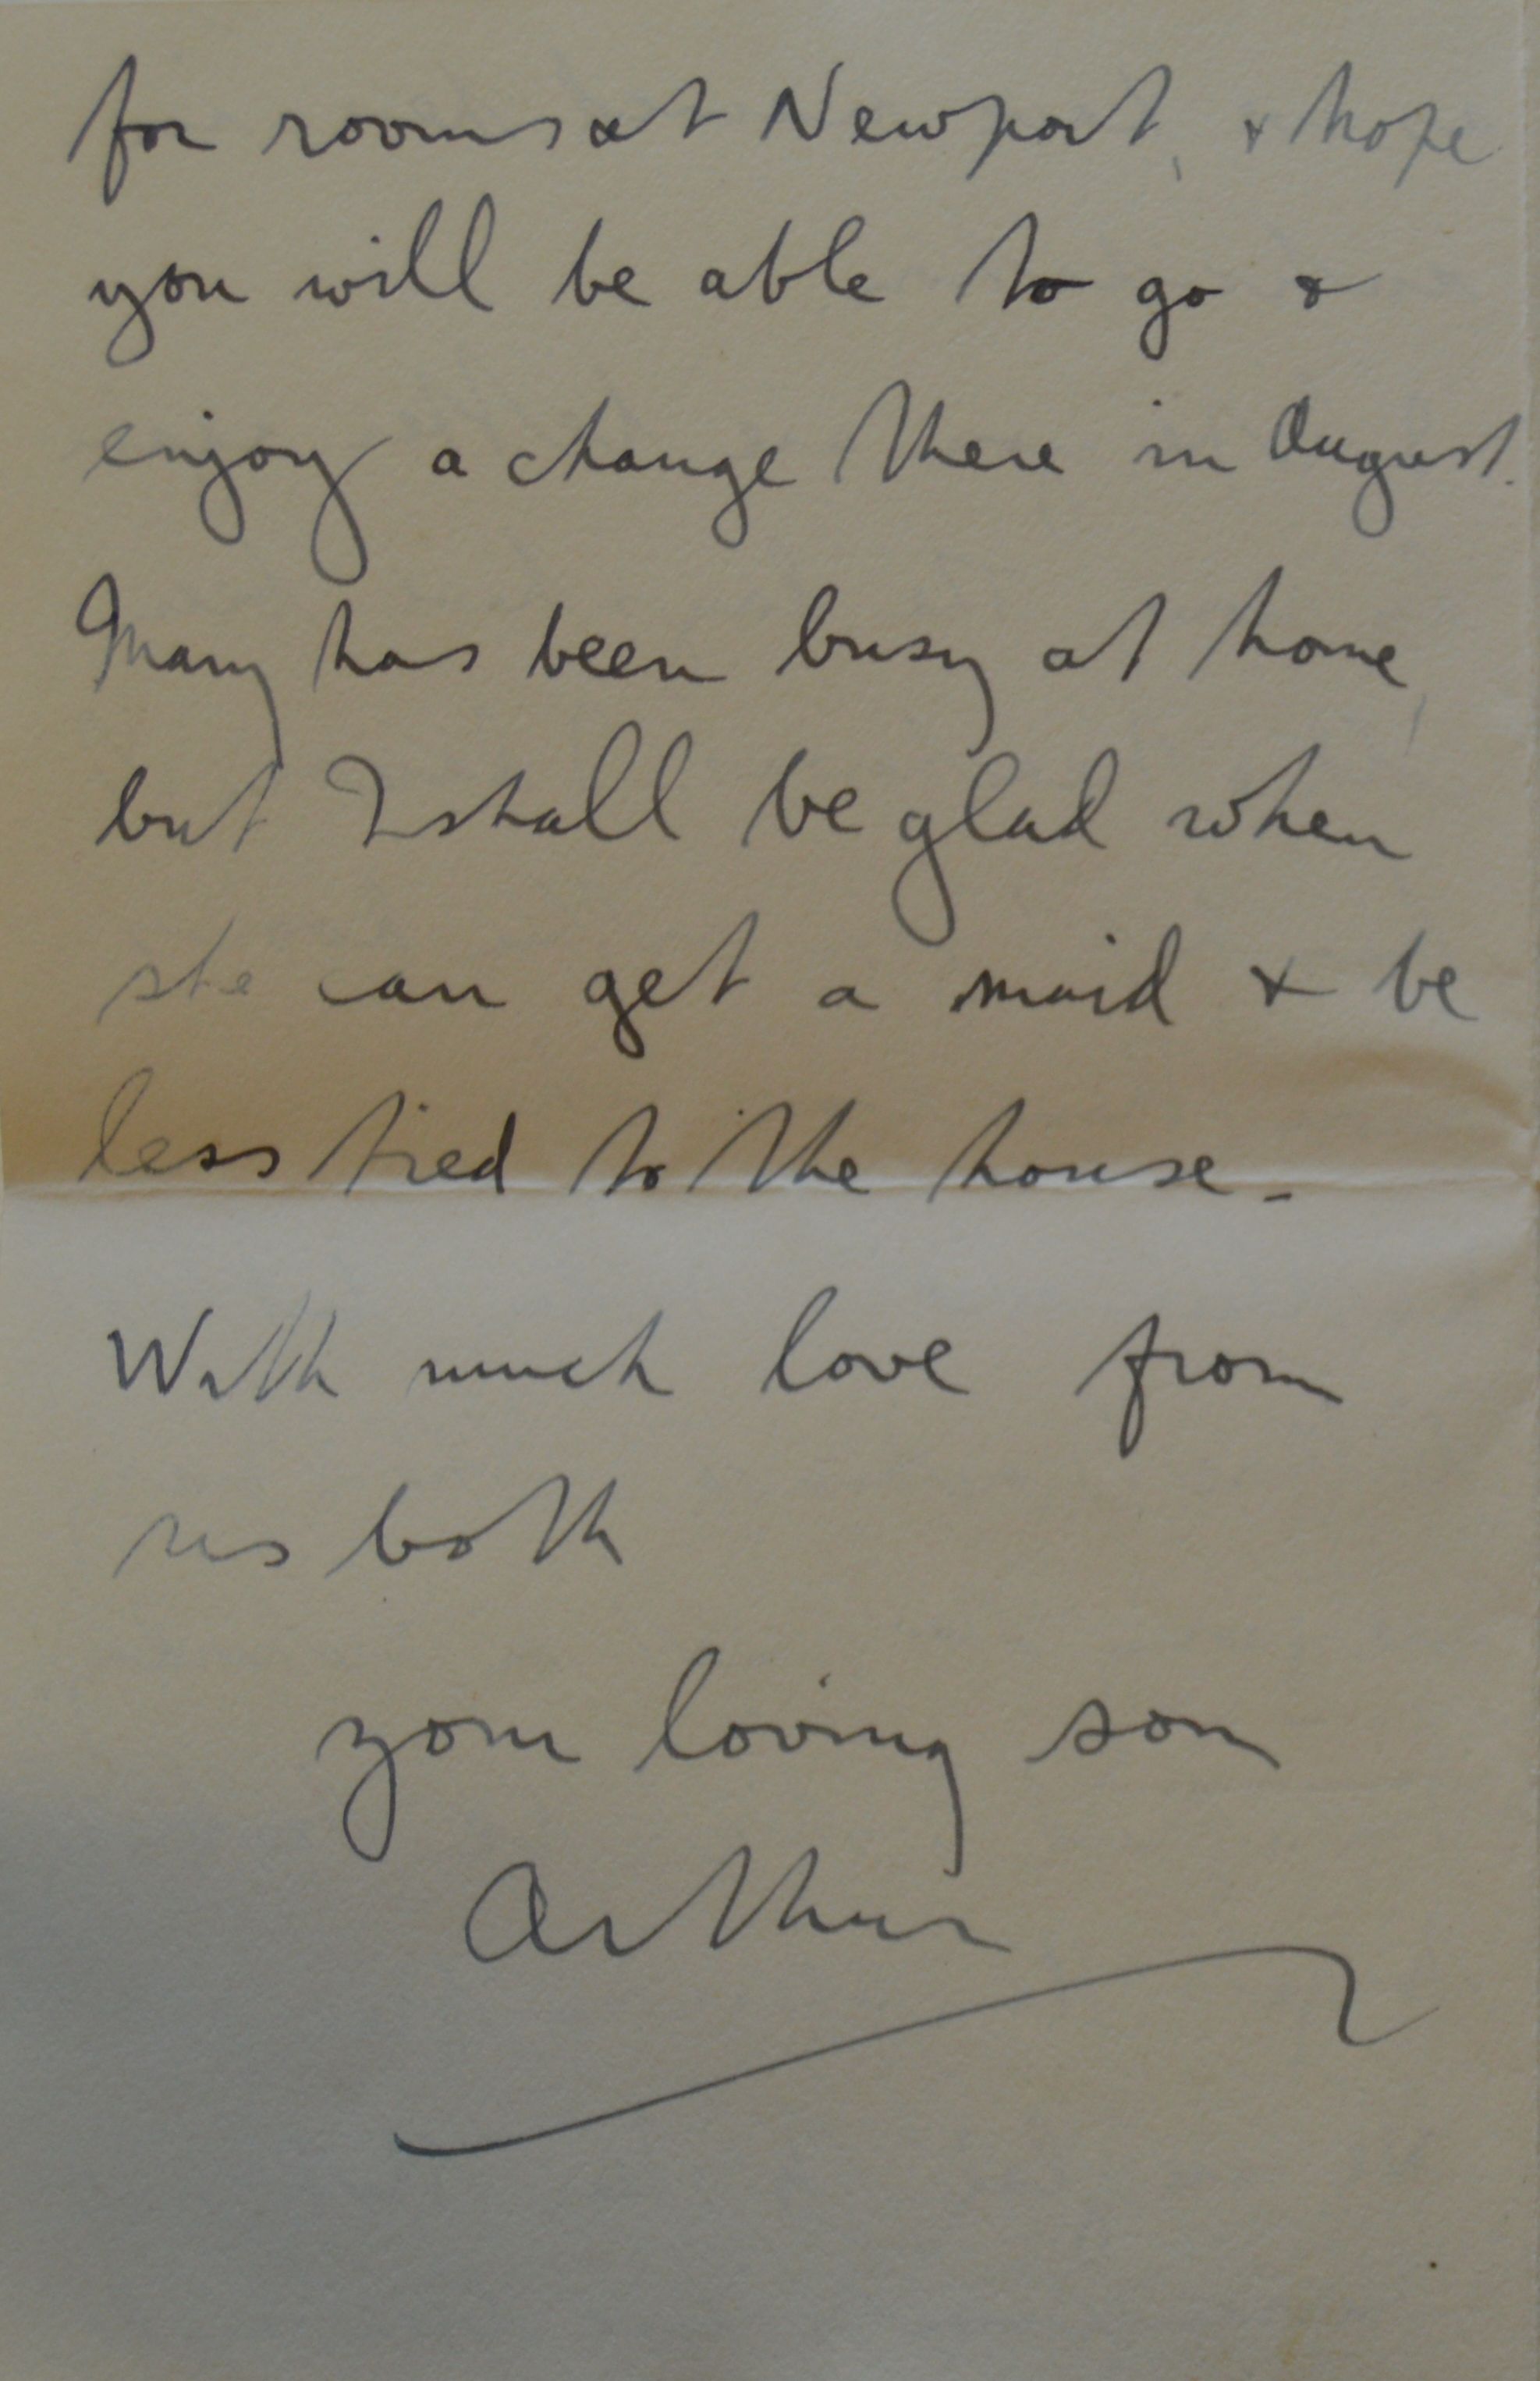 for rooms at Newport, & hope
you will be able to go &
enjoy a change there in August.
Mary has been busy at home,
but I shall be glad when
she can get a maid & be
less tied to the house.
With much love from
us both
your loving son
Arthur